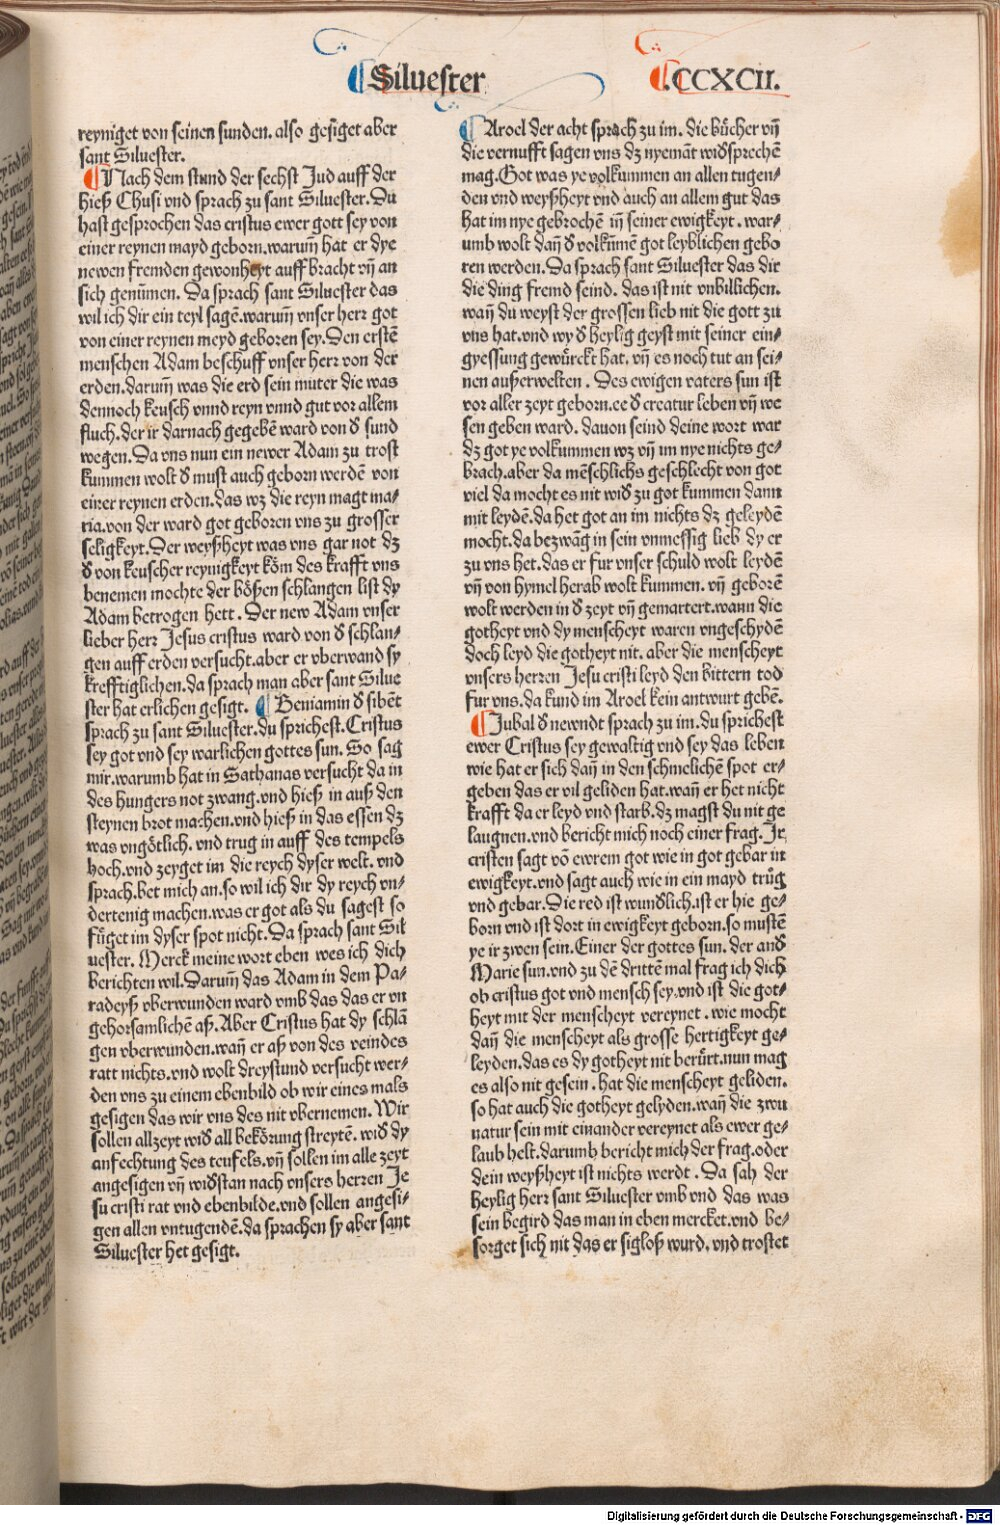 Siluester
.CCXCII.
reyniget von seinen sunden. also gesiget aber
sant Siluester.
Nach dem stund der sechst Jud auff der
hieß Chusi vnd sprach zu sant Siluester. Du
hast gesprochen das cristus ewer gott sey von
einer reynen mayd geborn. warum̄ hat er dye
newen fremden gewonheyt auff bracht vn̄ an
sich genūmen. Da sprach sant Siluester das
wil ich dir ein teyl sagē. warum̄ vnser herr got
von einer reynen meyd geboren sey. Den erstē
menschen Adam beschuff vnser herr von der
erden. darum̄ was die erd sein muter die was
dennoch keusch vnnd reyn vnnd gut vor allem
fluch. der ir darnach gegebē ward von d̕ sund
wegen. Da vns nun ein newer Adam zu trost
kummen wolt d̕ must auch geborn werdē von
einer reynen erden. das wz die reyn magt ma⸗
ria. von der ward got geboren vns zu grosser
seligkeyt. Der weyßheyt was vns gar not dz
d̕ von keuscher reynigkeyt köm des krafft vns
benemen mochte der bößen schlangen list dy
Adam betrogen hett. Der new Adam vnser
lieber herr Jesus cristus ward von d̕ schlan⸗
gen auff erden versucht. aber er vberwand sy
krefftiglichen. da sprach man aber sant Silue
ster hat erlichen gesigt. Beniamin d̕ sibēt
sprach zu sant Siluester. du sprichest. Cristus
sey got vnd sey warlichen gottes sun. So sag
mir. warumb hat in Sathanas versucht da in
des hungers not zwang. vnd hieß in auß den
steynen brot machen. vnd hieß in das essen dz
was vngötlich. vnd trug in auff des tempels
hoch. vnd zeyget im die reych dyser welt. vnd
sprach. bet mich an. so wil ich dir dy reych vn⸗
dertenig machen. was er got als du sagest so
fuͤget im dyser spot nicht. Da sprach sant Sil
uester. Merck meine wort eben wes ich dich
berichten wil. Darum̄ das Adam in dem Pa⸗
radeyß vberwunden ward vmb das das er vn
gehorsamlichē aß. Aber Cristus hat dy schlā
gen vberwunden. wan̄ er aß von des veindes
ratt nichts. vnd wolt dreystund versucht wer⸗
den vns zu einem ebenbild ob wir eines mals
gesigen das wir vns des nit vbernemen. Wir
sollen allzeyt wid̕ all bekörung streytē. wid̕ dy
anfechtung des teufels. vn̄ sollen im alle zeyt
angesigen vn̄ wid̕stan nach vnsers herren Je
su cristi rat vnd ebenbilde. vnd sollen angesi⸗
gen allen vntugendē. da sprachen sy aber sant
Siluester het gesigt.
Aroel der acht sprach zu im. die buͤcher vn̄
die vernufft sagen vns dz nyemāt wid̕sprechē
mag. Got was ye volkummen an allen tugen⸗
den vnd weyßheyt vnd auch an allem gut das
hat im nye gebrochē in̄ seiner ewigkeyt. war⸗
umb wolt dan̄ d̕ volkūmē got leyblichen gebo
ren werden. Da sprach sant Siluester das dir
die ding fremd seind. das ist nit vnbillichen.
wan̄ du weyst der grossen lieb nit die gott zu
vns hat. vnd wy d̕ heylig geyst mit seiner ein⸗
gyessung gewuͤrckt hat. vn̄ es noch tut an sei⸗
nen außerwelten. Des ewigen vaters sun ist
vor aller zeyt geborn. ee d̕ creatur leben vn̄ we
sen geben ward. dauon seind deine wort war
dz got ye volkummen wz vn̄ im nye nichts ge⸗
brach. aber da mēschlichs geschlecht von got
viel da mocht es nit wid̕ zu got kummen dann
mit leydē. da het got an im nichts dz geleydē
mocht. da bezwāg in sein vnmessig lieb dy er
zu vns het. das er fur vnser schuld wolt leydē
vn̄ von hymel herab wolt kummen. vn̄ geborē
wolt werden in d̕ zeyt vn̄ gemartert. wann die
gotheyt vnd dy menscheyt waren vngeschydē
doch leyd die gotheyt nit. aber die menscheyt
vnsers herren Jesu cristi leyd den bittern tod
fur vns. da kund im Aroel kein antwurt gebē.
Jubal d̕ newndt sprach zu im. du sprichest
ewer Cristus sey gewaltig vnd sey das leben
wie hat er sich dan̄ in den schmelichē spot er⸗
geben das er vil geliden hat. wan̄ er het nicht
krafft da er leyd vnd starb. dz magst du nit ge
laugnen. vnd bericht mich noch einer frag. Jr
cristen sagt vō ewrem got wie in got gebar in
ewigkeyt. vnd sagt auch wie in ein mayd truͤg
vnd gebar. Die red ist wund̕lich. ist er hie ge⸗
born vnd ist dort in ewigkeyt geborn. so mustē
ye ir zwen sein. Einer der gottes sun. der and̕
Marie sun. vnd zu dē drittē mal frag ich dich
ob cristus got vnd mensch sey. vnd ist die got⸗
heyt mit der menscheyt vereynet. wie mocht
dan̄ die menscheyt als grosse hertigkeyt ge⸗
leyden. das es dy gotheyt nit beruͤrt. nun mag
es also nit gesein. hat die menscheyt geliden.
so hat auch die gotheyt gelyden. wan̄ die zwu
natur sein mit einander vereynet als ewer ge⸗
laub helt. darumb bericht mich der frag. oder
dein weyßheyt ist nichts werdt. Da sah der
heylig herr sant Siluester vmb vnd das was
sein begird das man in eben mercket. vnd be⸗
sorget sich nit das er sigloß wurd. vnd trostet
Digitalisierung gefördert durch die Deutsche Forschungsgemeinschaft - DFG